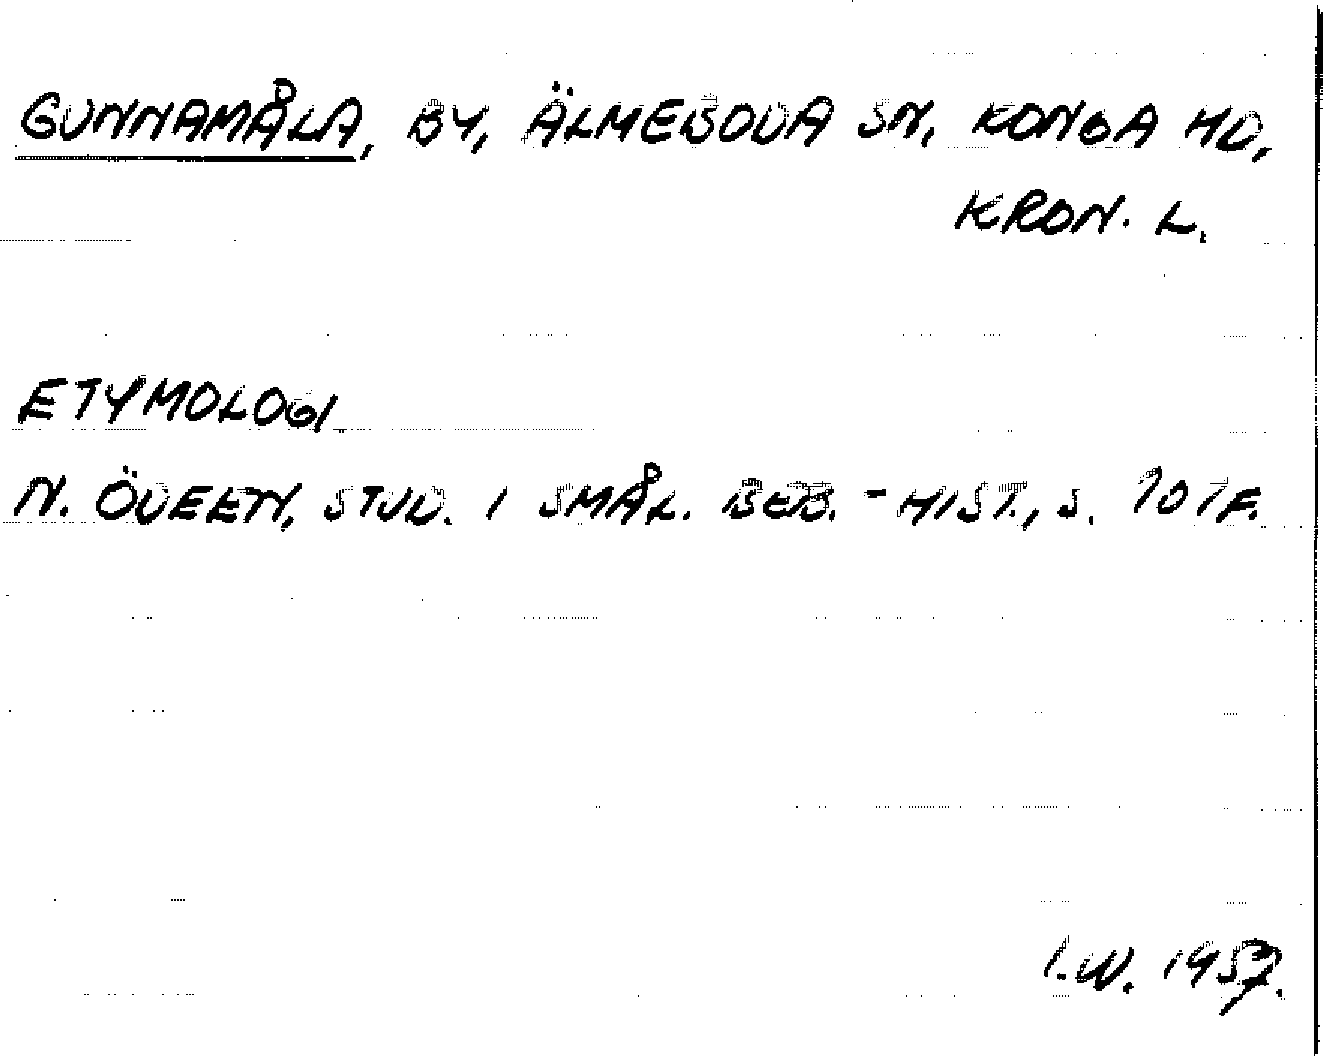 GUNNAMÅLA, BY, ÄLMEBODA SN, KONGA HD,
KRON. L.
ETYMOLOGI.
N. ÖDEEN, STUD. I SMÅL. BEB.-HIST., S. 101 F.
I.W. 1957.